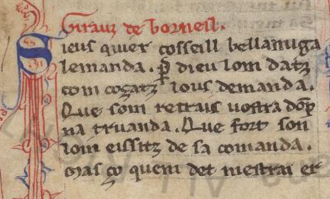 Girauz de borneil.
Sieus quier cosseill bellamiga
lemanda. ꝑ dieu lom datz
com cogatz ious demanda.
Que som retrais uostra dōp
na truanda. Que fort son
lom eissitz de sa comanda.
Mas ço quem det mestrai er